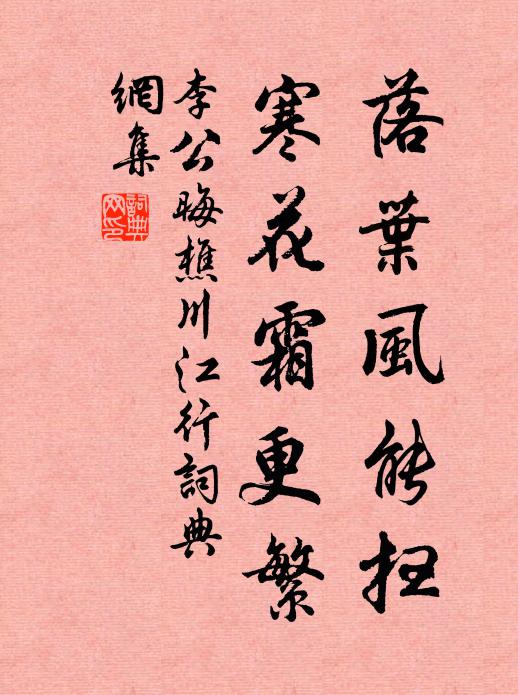 落葉風能掃
寒花霜更繁
李公晦樵川江行詞典
網集
詞典
网印